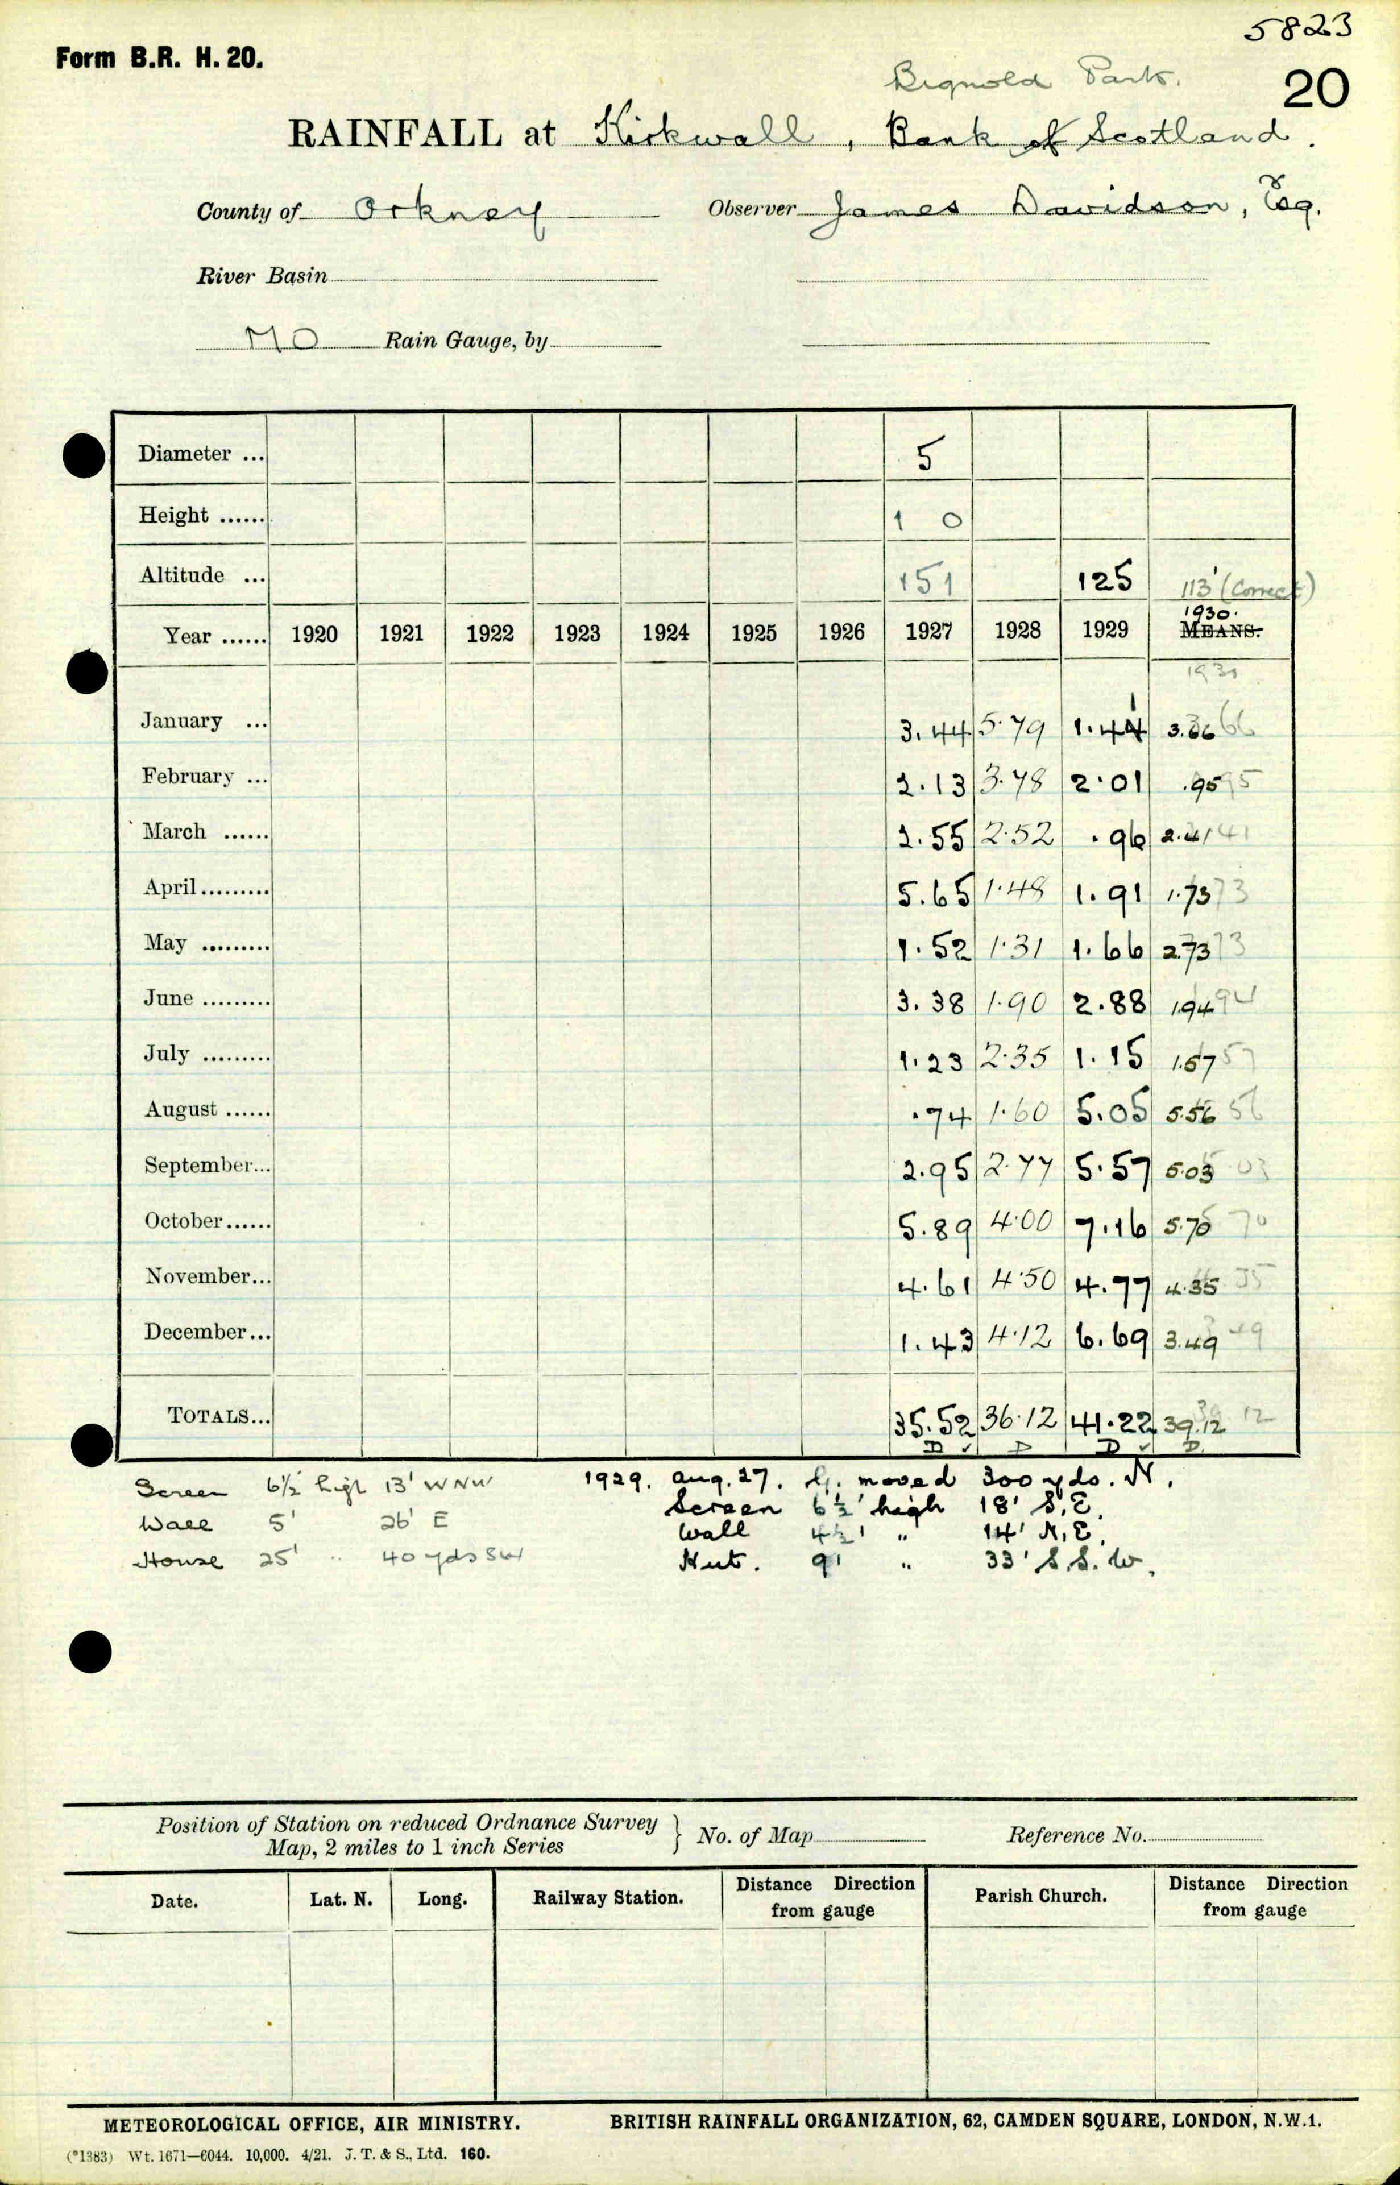 5823
Form B.R. H. 20.
Bignold Park.
20
RAINFALL at Kirkwall, Bank of Scotland.
County of Orkney Observer James Davidson, Esqr.
River Basin
MO Rain Gauge, by
Diameter ... 5
Height ...... 1 0
Altitude ... 151 125 113' (Correct)
1930.
Year ...... 1920 1921 1922 1923 1924 1925 1926 1927 1928 1929 MEANS.
1930
January ... 3.44 5.79 1.44 1 3.66 66
February ... 2.13 3.78 2.01 .95 95
March ...... 2.55 2.52 .96 2.41 41
April ......... 5.65 1.48 1.91 1.73 73
May ......... 1.52 1.31 1.66 2.73 73
June ......... 3.38 1.90 2.88 1.94 94
July ......... 1.23 2.35 1.15 1.57 57
August ...... .74 1.60 5.05 5.56 56
September... 2.95 2.77 5.57 5.03 03
October...... 5.89 4.00 7.16 5.70 70
November... 4.61 4.50 4.77 4.35 35
December... 1.43 4.12 6.69 3.49 49
TOTALS... 35.52 36.12 41.22 39.12 39 12
D ✓ D D ✓ D
Screen 6½' high 13' WNW 1929. Aug. 27. G. moved 300 yds. N.
Screen 6½' high 18' S.E.
Wall 5' 26' E Wall 4½' " 14' N.E.
House 25' " 40 yds SW Hut. 9' " 33' S.S.W.
Position of Station on reduced Ordnance Survey
Map, 2 miles to 1 inch Series } No. of Map Reference No.
Date. Lat. N. Long. Railway Station. Distance Direction from gauge Parish Church. Distance Direction from gauge
METEOROLOGICAL OFFICE, AIR MINISTRY. BRITISH RAINFALL ORGANIZATION, 62, CAMDEN SQUARE, LONDON, N.W.1.
(*1383) Wt. 1671—6044. 10,000. 4/21. J. T. & S., Ltd. 160.